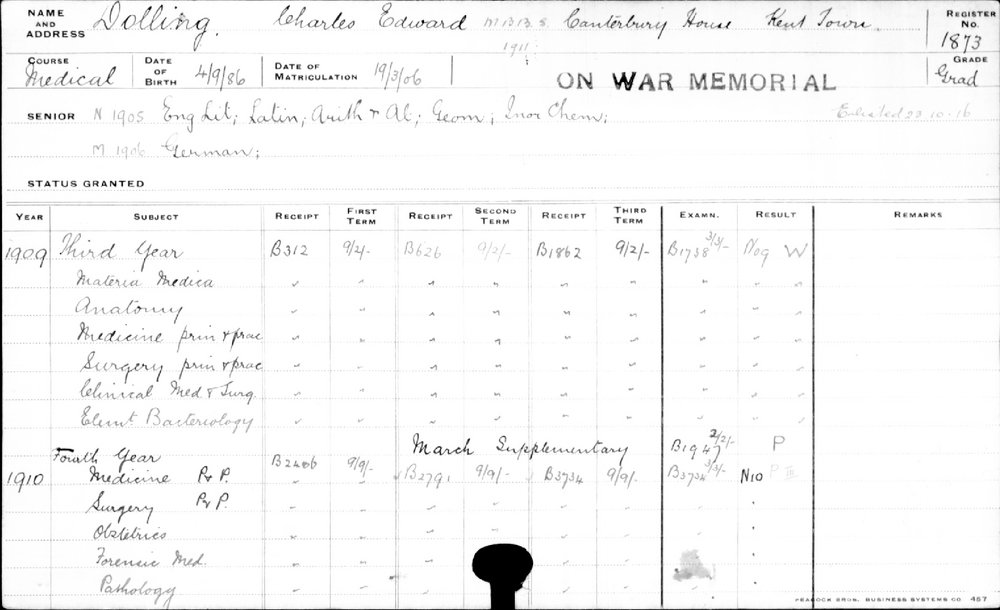 NAME AND ADDRESS Dolling, Charles Edward M.B. B.S. 1911. Canterbury House Kent Town. REGISTER No. 1873
COURSE Medical DATE OF BIRTH 4/9/86 DATE OF MATRICULATION 19/3/06 ON WAR MEMORIAL GRADE Grad
SENIOR N 1905 Eng Lit; Latin; Arith + Al; Geom; Inor Chem; Enlisted 23·10·16
M 1906 German;
STATUS GRANTED
YEAR SUBJECT RECEIPT FIRST TERM RECEIPT SECOND TERM RECEIPT THIRD TERM EXAMN. RESULT REMARKS
1909 Third Year B312 9/2/- B626 9/2/- B1862 9/2/- B1738 3/3/- N09 W
Materia Medica " " " " " " " "
Anatomy " " " " " " " "
Medicine prin + prac " " " " " " " "
Surgery prin + prac " " " " " " " "
Clinical Med + Surg. " " " " " " " "
Elemt Bacteriology " " " " " " " "
March Supplementary B1947 2/2/- P
Fourth Year B2406 9/9/-
1910 Medicine Pr P. " " B2791 9/9/- B3734 9/9/- B3734 3/3/- N10 P III
Surgery Pr P. " " " " " " "
Obstetrics " " " " " " "
Forensic Med. " " " "
Pathology " " " " " "
PEACOCK BROS. BUSINESS SYSTEMS CO 457